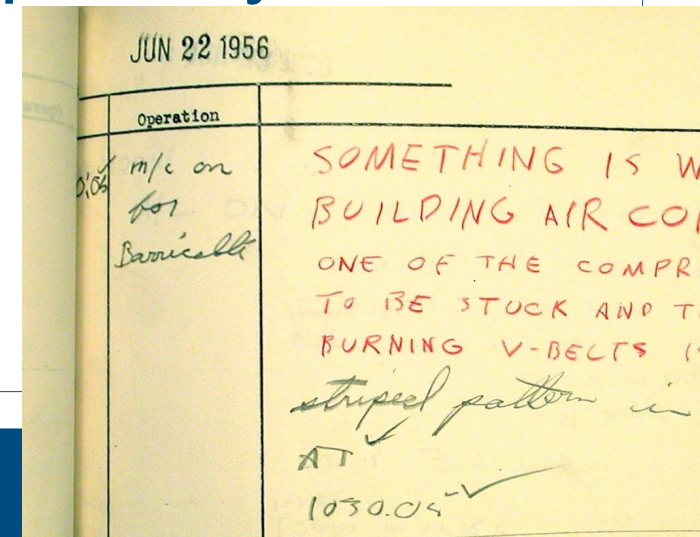 JUN 22 1956
Operation
m/c on
for
Barricelli
SOMETHING IS W
BUILDING AIR CO
ONE OF THE COMPR
TO BE STUCK AND T
BURNING V-BELTS
striped pattern in
AT ✓
1030.05 ✓